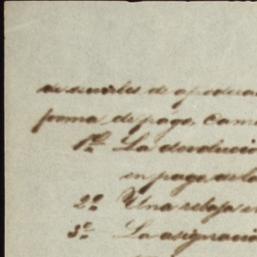 de
forma de pago, como
1º La devolució
en pago de lo
2º Una rebaja e
3º La asignació